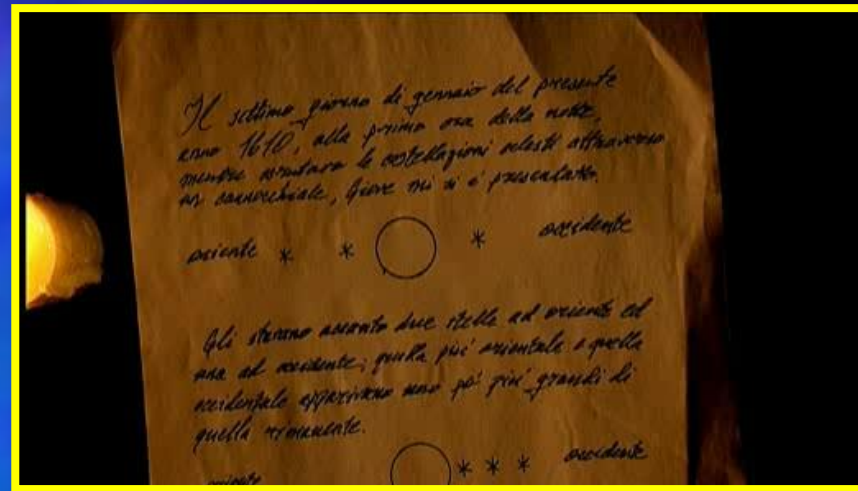 Il settimo giorno di gennaio del presente
anno 1610, alla prima ora della notte,
mentre scrutavo le costellazioni celesti attraverso
un cannocchiale, Giove mi si è presentato.
oriente * * * occidente
Gli stavano accanto due stelle ad oriente ed
una ad occidente; quella più orientale e quella
occidentale apparivano uno po' più grandi di
quella rimanente.
oriente * * * occidente